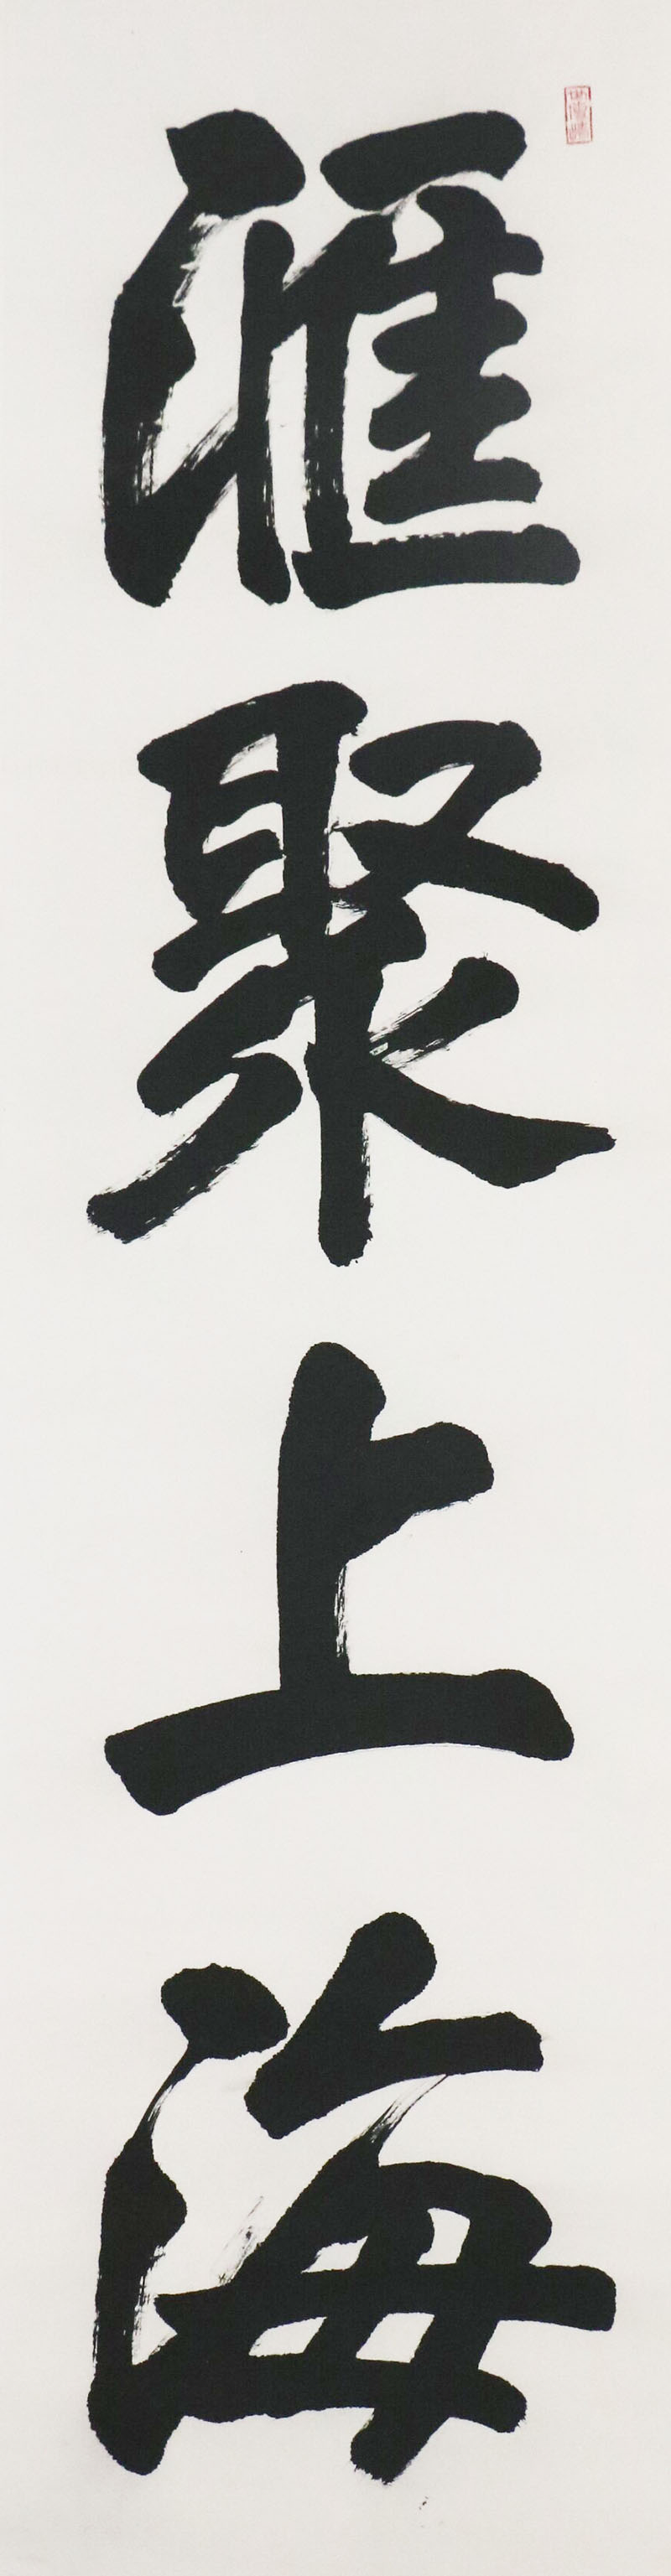 滙聚上海